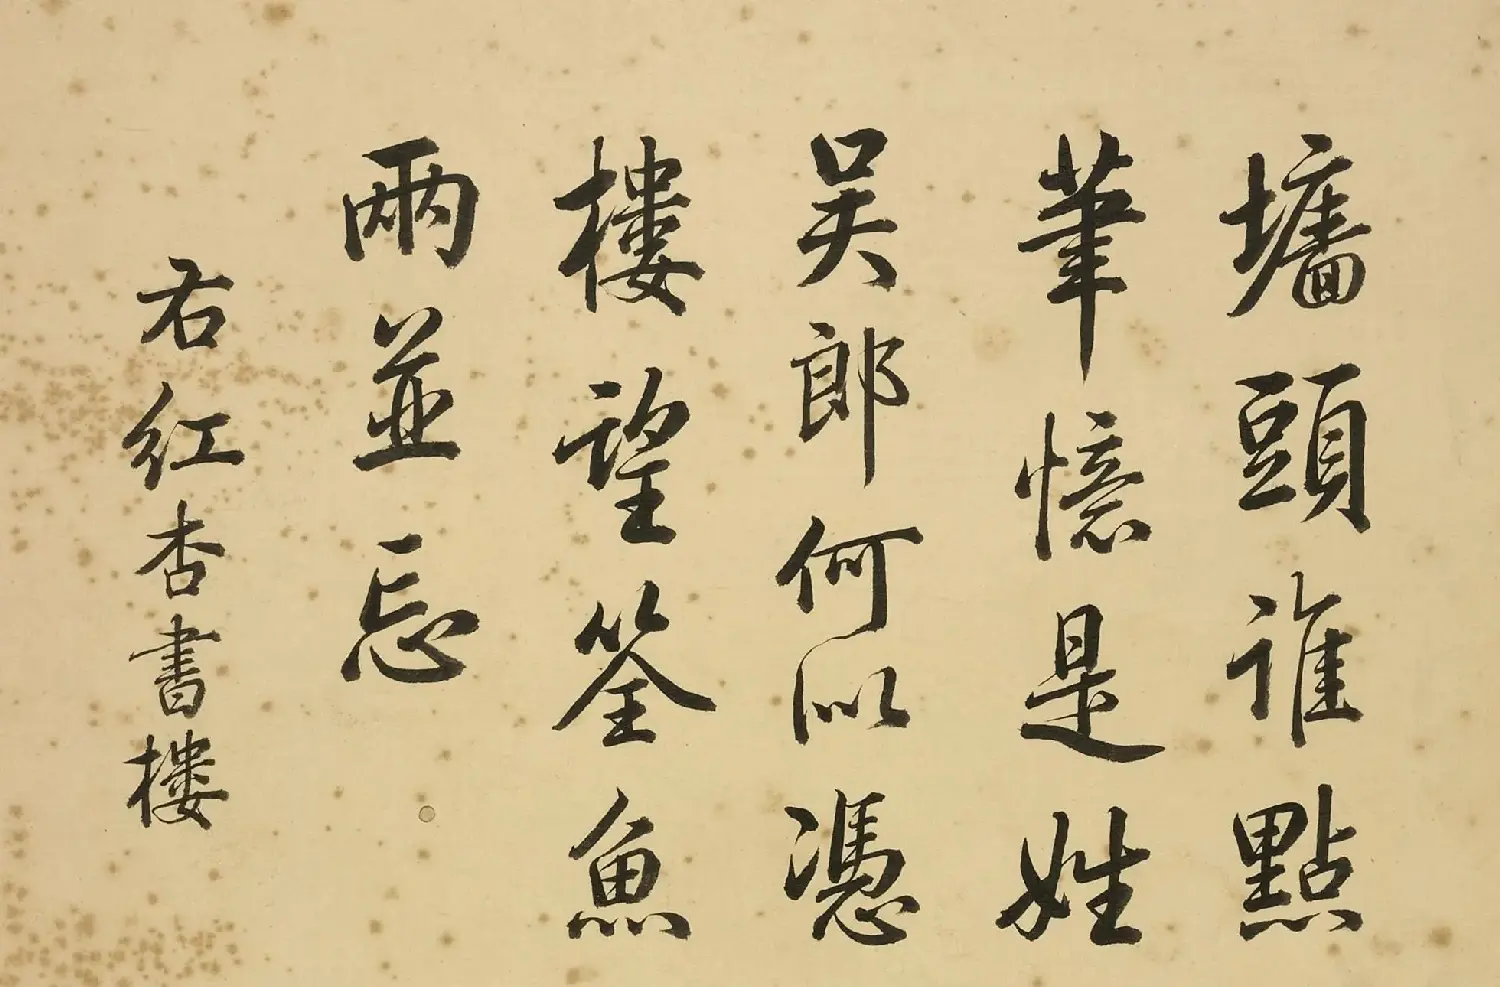 墻頭誰點
筆憶是姓
吴郎何以憑
樓望筌魚
兩並忘
右紅杏書樓